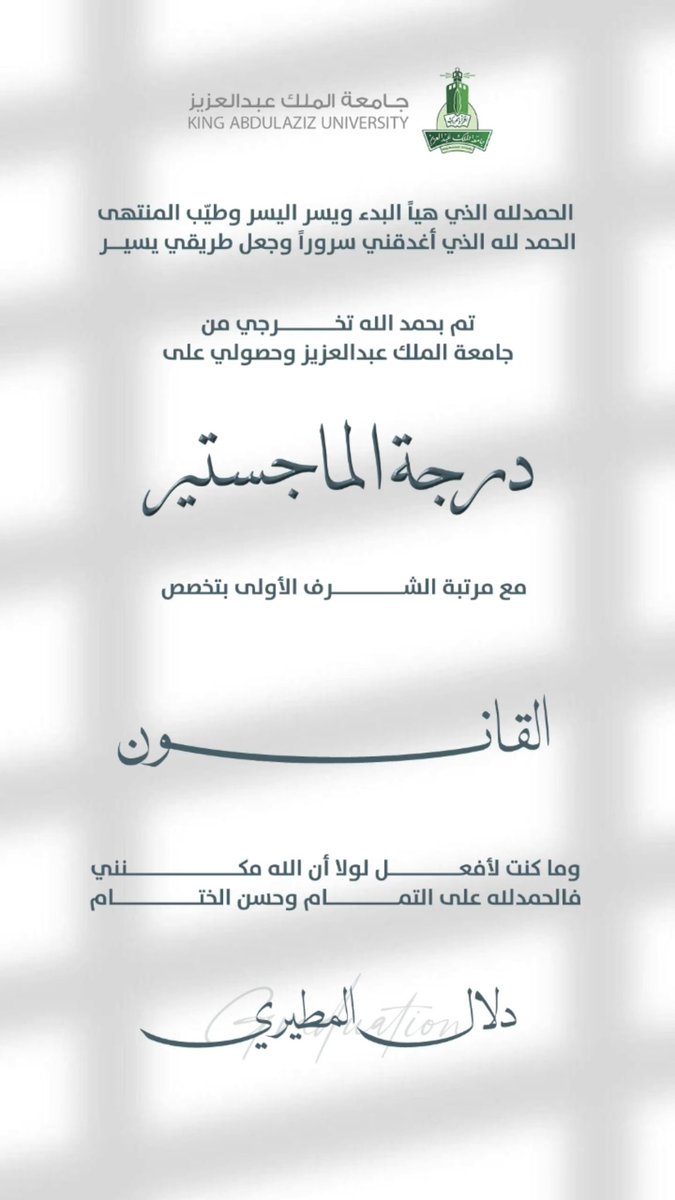 جامعة الملك عبدالعزيز
KING ABDULAZIZ UNIVERSITY
الحمدلله الذي هيأ البدء ويسر اليسر وطيّب المنتهى
الحمد لله الذي أغدقني سروراً وجعل طريقي يسير
تم بحمد الله تخرجي من
جامعة الملك عبدالعزيز وحصولي على
درجة الماجستير
مع مرتبة الشرف الأولى بتخصص
القانون
وما كنت لأفعل لولا أن الله مكنني
فالحمدلله على التمام وحسن الختام
دلال المطيري
Graduation